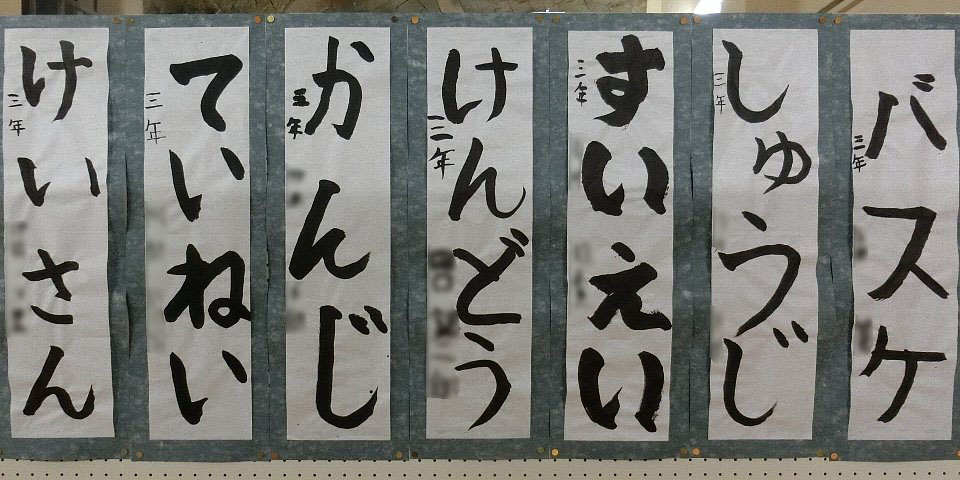 バスケ
三年
しゅうじ
三年
すいえい
三年
けんどう
三年
かんじ
五年
ていねい
三年
けいさん
三年